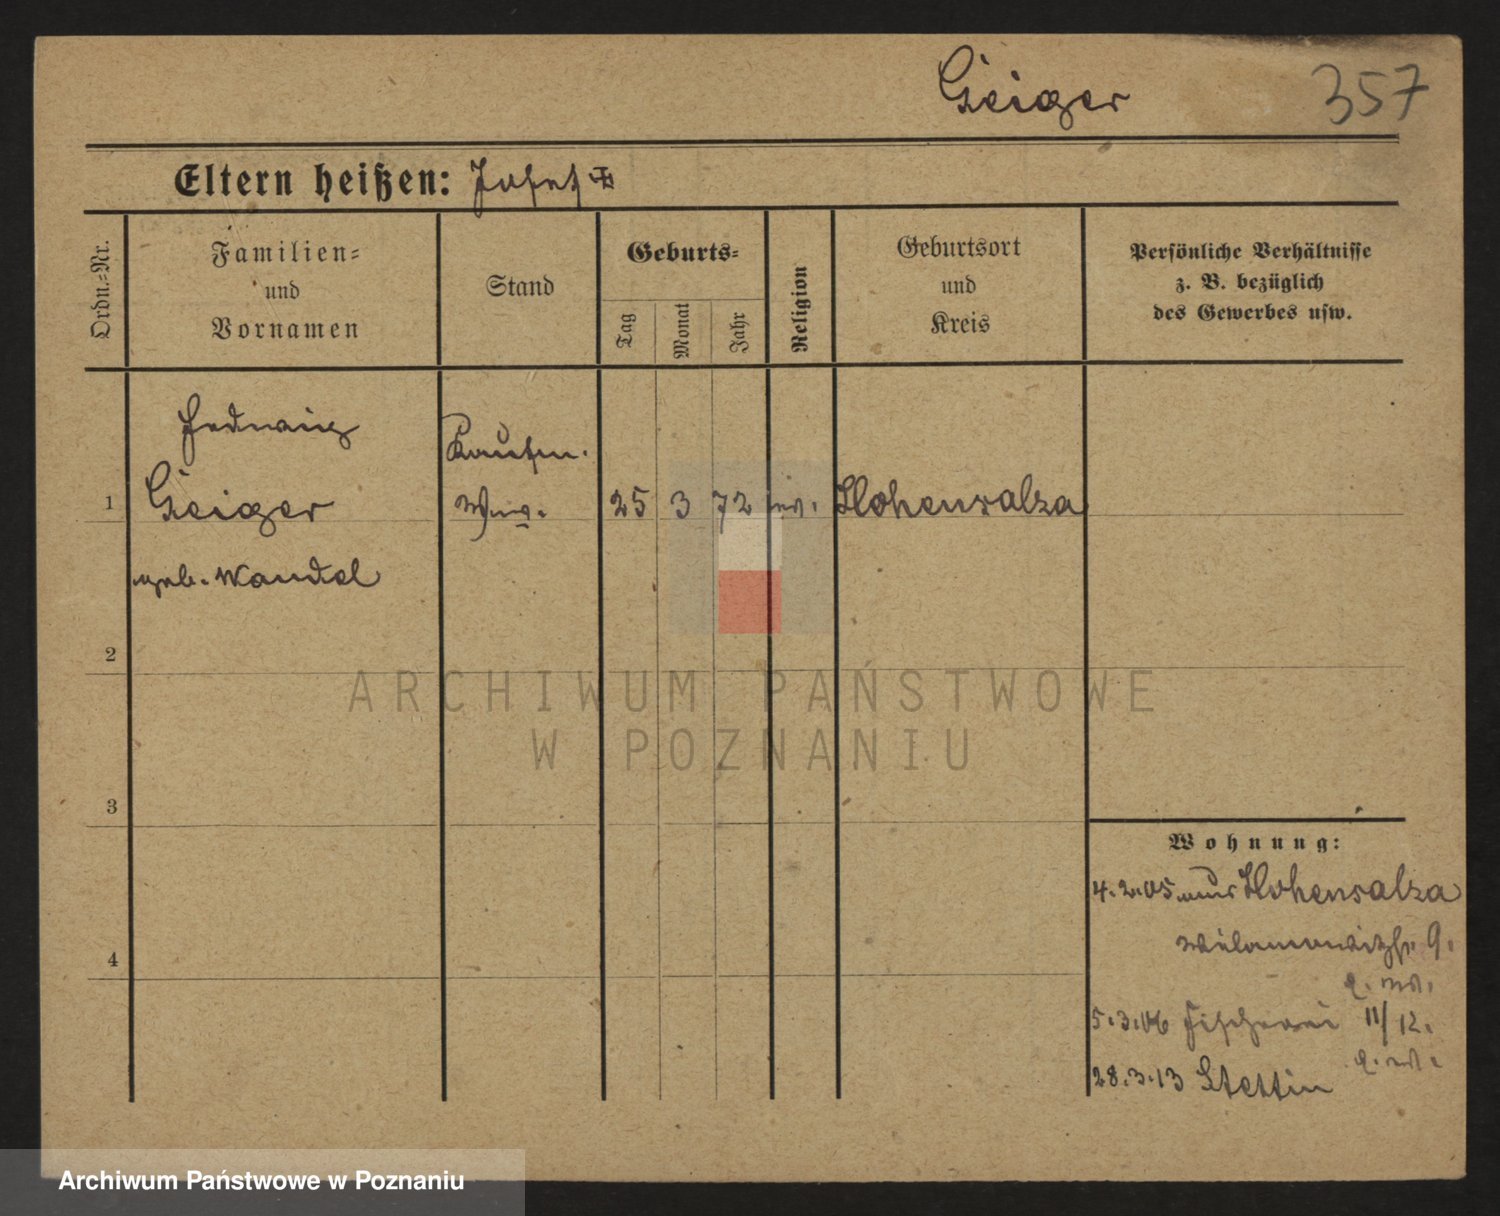 Geiger
357
Eltern heißen: Josef
Ordn.-Nr.
Familien-
und
Vornamen
Stand
Geburts-
Tag
Monat
Jahr
Religion
Geburtsort
und
Kreis
Persönliche Verhältnisse
z. B. bezüglich
des Gewerbes usw.
Hedwig
Kaufm.
1 Geiger Wwe. 25 3 72 Hohensalza
geb. Wandel
2
3
4
ARCHIWUM PAŃSTWOWE
W POZNANIU
Wohnung:
4.2.05 aus Hohensalza
9.
5.3.06 Fischerei 11/12.
28.3.13 Stettin
Archiwum Państwowe w Poznaniu